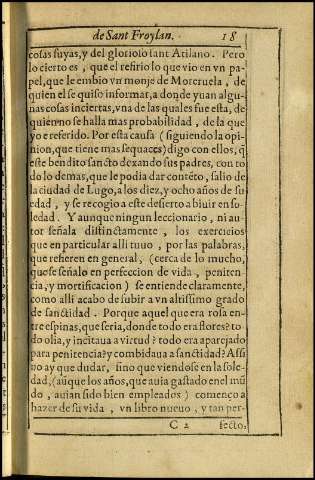 de Sant Froylan. 18
cosas suyas, y del glorioso sant Atilano. Pero
lo cierto es, que el refirio lo que vio en vn pa-
pel, que le embio vn monje de Moreruela, de
quien el se quiso informar, a donde yuan algu-
nas cosas inciertas, vna de las quales fue esta, de
quien no se halla mas probabilidad, de la que
yo e referido. Por esta causa (siguiendo la opi-
nion, que tiene mas sequaces) digo con ellos, q̃
este bendito sancto dexando sus padres, con to
do lo demas, que le podia dar contẽto, salio de
la ciudad de Lugo, a los diez, y ocho años de su
edad, y se recogio a este desierto a biuir en so-
ledad. Y aunque ningun leccionario, ni au-
tor señala distinctamente, los exercicios
que en particular alli tuuo, por las palabras,
que refieren en general, (cerca de lo mucho,
que se señalo en perfeccion de vida, peniten
cia, y mortificacion) se entiende claramente,
como alli acabo de subir a vn altissimo grado
de sanctidad. Porque aquel que era rosa en-
tre espinas, que seria, donde todo era flores? to
do olia, y incitaua a virtud? todo era aparejado
para penitencia? y combidaua a sanctidad? Assi
no ay que dudar, sino que viendose en la sole-
dad, (aũque los años, que auia gastado en el mũ
do, auian sido bien empleados) començo a
hazer de su vida, vn libro nueuo, y tan per-
C 2 fecto: